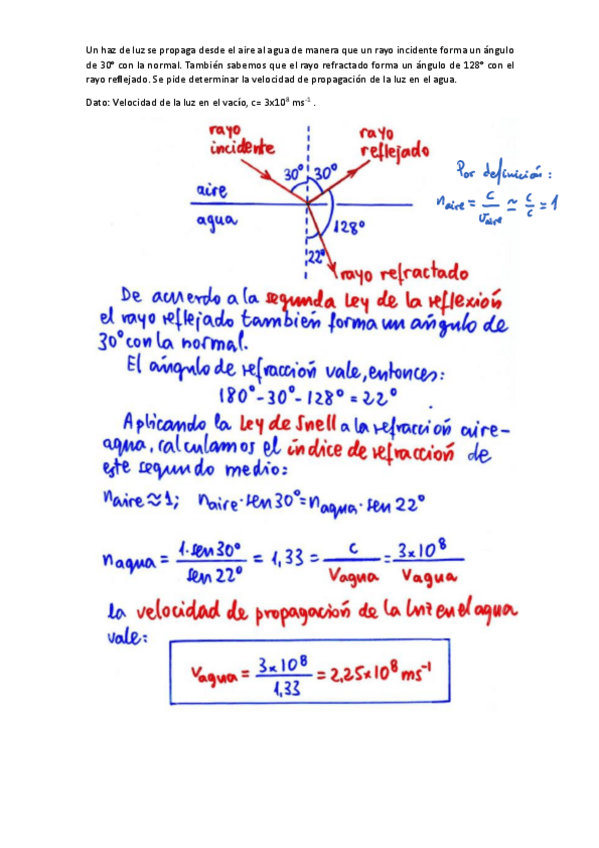 Un haz de luz se propaga desde el aire al agua de manera que un rayo incidente forma un ángulo
de 30° con la normal. También sabemos que el rayo refractado forma un ángulo de 128° con el
rayo reflejado. Se pide determinar la velocidad de propagación de la luz en el agua.
Dato: Velocidad de la luz en el vacío, c= 3x10⁸ ms⁻¹ .
rayo incidente
rayo reflejado
30° 30°
aire
agua
128°
22°
rayo refractado
Por definición:
n aire = c / v aire ≃ c/c = 1
De acuerdo a la segunda Ley de la reflexión
el rayo reflejado también forma un ángulo de
30° con la normal.
El ángulo de refracción vale, entonces:
180° - 30° - 128° = 22°
Aplicando la Ley de Snell a la refracción aire-
agua, calculamos el índice de refracción de
este segundo medio:
n aire ≈ 1; n aire · sen 30° = n agua · sen 22°
n agua = 1 · sen 30° / sen 22° = 1,33 = c / v agua = 3x10⁸ / v agua
la velocidad de propagación de la luz en el agua
vale:
v agua = 3x10⁸ / 1,33 = 2,25x10⁸ ms⁻¹